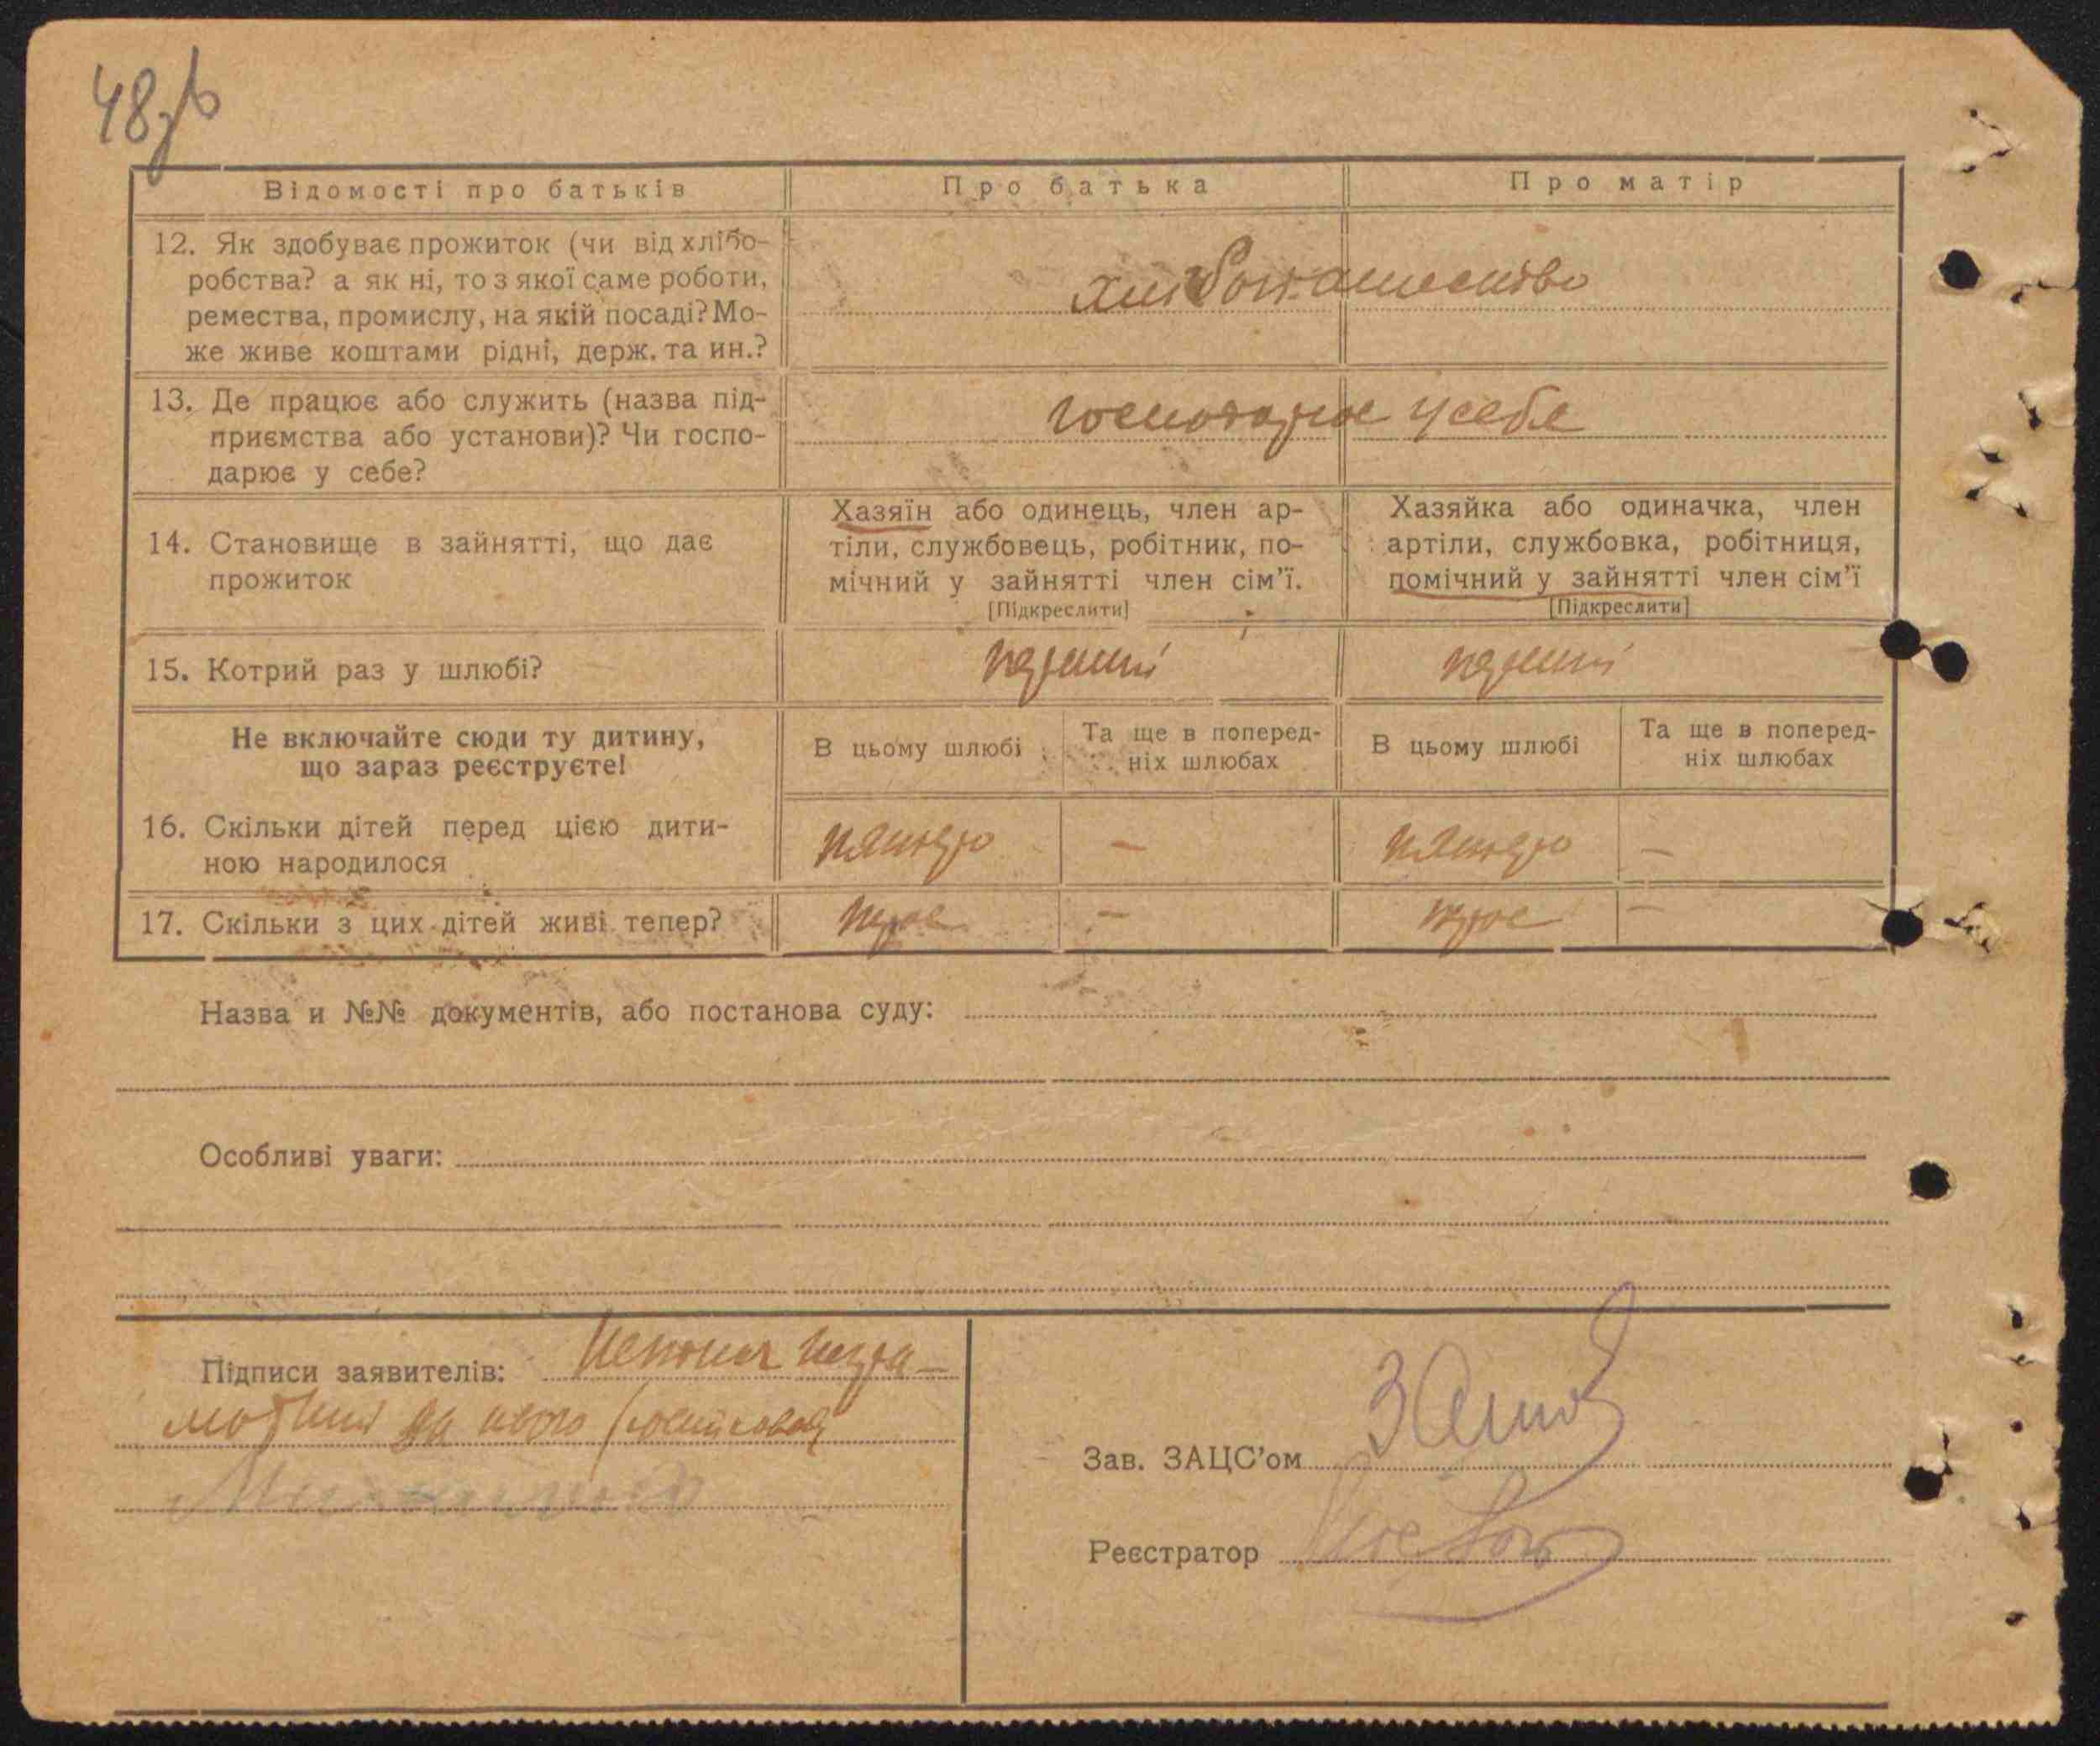 48зв
Відомості про батьків
Про батька
Про матір
12. Як здобуває прожиток (чи від хлібо-
робства? а як ні, то з якої саме роботи,
ремества, промислу, на якій посаді? Мо-
же живе коштами рідні, держ. та ин.?
13. Де працює або служить (назва під-
приємства або установи)? Чи госпо-
дарює у себе?
господарює у себе
14. Становище в зайнятті, що дає
прожиток
Хазяїн або одинець, член ар-
тіли, службовець, робітник, по-
мічний у зайнятті член сім’ї.
[Підкреслити]
Хазяйка або одиначка, член
артіли, службовка, робітниця,
помічний у зайнятті член сім’ї
[Підкреслити]
15. Котрий раз у шлюбі?
перший
перший
Не включайте сюди ту дитину,
що зараз реєструєте!
В цьому шлюбі
Та ще в поперед-
ніх шлюбах
В цьому шлюбі
Та ще в поперед-
ніх шлюбах
16. Скільки дітей перед цією дити-
ною народилося
пятеро
–
пятеро
–
17. Скільки з цих дітей живі тепер?
троє
–
троє
–
Назва и №№ документів, або постанова суду:
Особливі уваги:
Підписи заявителів: негра-
мотний за його
Зав. ЗАЦС’ом
Реєстратор